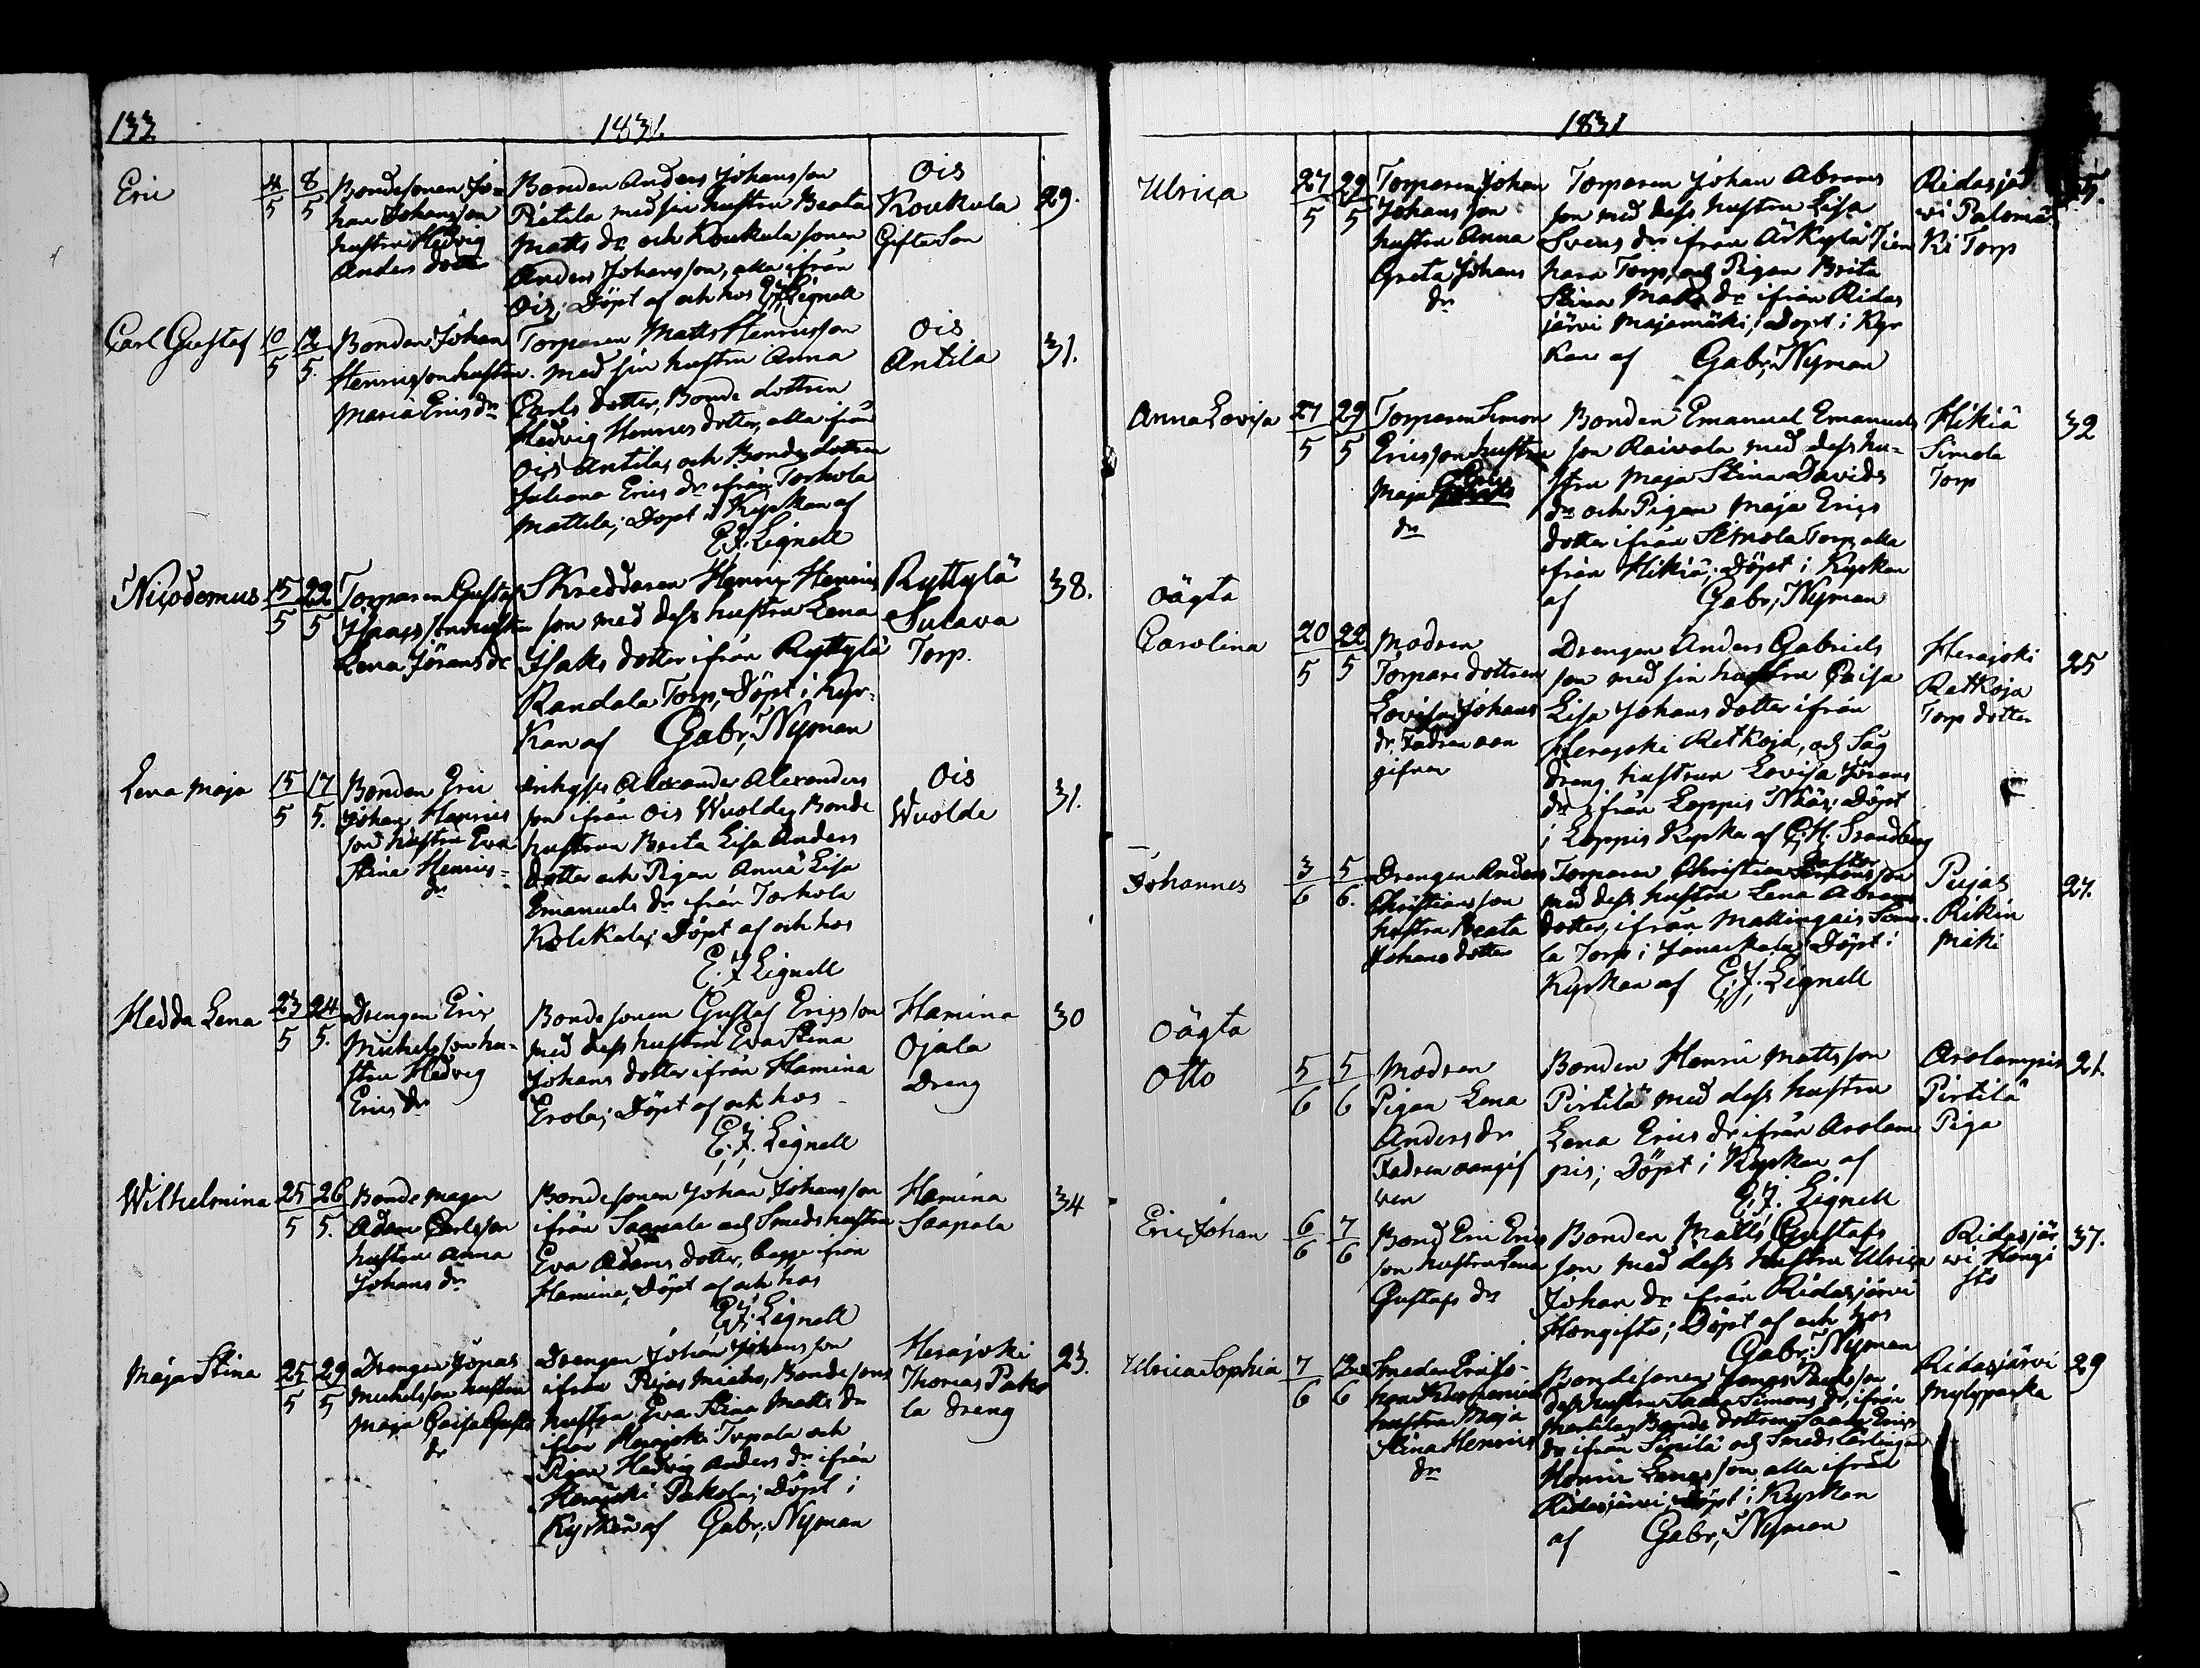 133
1831.
Eric
4/5
8/5
Bondesonen Jo=
han Johansson
hustru Hedvig
Anders dotter
Bonden Anders Johansson
Pietila med sin hustru Beata
Matts dr och Koukula sonen
Anders Johansson, alla ifrån
Ois; Döpt af och hos E.J. Lignell
Ois
Koukula
Gifte Son
29.
Carl Gustaf
10/5
12/5.
Bonden Johan
Henricsson hustru
Maria Erics dr
Torparen Matts Henricsson
med sin hustru Anna
Carls dotter, Bonde dottren
Hedvig Henrics dotter, alla ifrån
Ois Antila, och Bonde dottren
Juliana Erics dr ifrån Torhola
Mattila; Döpt i Kyrkan af
E.J. Lignell
Ois
Antila
31.
Nicodemus
15/5
22/5
Torparen Gustaf
Isaacsson hustru
Lena Jörans dr
Skreddaren Henric Henrics
son med dess hustru Lena
Isaks dotter ifrån Ryttylä
Randala Torp; Döpt i Kyr-
kan af Gabr. Nyman
Ryttylä
Sulava
Torp.
38.
Lena Maja
15/5
17/5.
Bonden Eric
Johan Henrics
son hustru Eva
Stina Henrics=
dr
Alexander Alexanders
son ifrån Ois Wuolde, Bonde
hustrun Brita Lisa Anders
dotter och Pigan Anna Lisa
Emanuels dr ifrån Torhola
Kolikala; Döpt af och hos
E.J. Lignell
Ois
Wuolde
31.
Hedda Lena
23/5
24/5.
Drengen Eric
Michelsson hu-
stru Hedvig
Erics dr
Bondesonen Gustaf Ericsson
med dess hustru Eva Stina
Johans dotter ifrån Hamina
Erola; Döpt af och hos
E.J. Lignell
Hamina
Ojala
Dreng
30
Wilhelmina
25/5
26/5.
Bonde magen
Adam Carlsson
hustru Anna
Johans dr
Bondesonen Johan Johansson
ifrån Saapala och Smeds hustrun
Eva Adams dotter, begge ifrån
Hamina; Döpt af och hos
E.J. Lignell
Hamina
Saapala
34
Maja Stina
25/5
29/5
Drengen Jonas
Michelsson hustru
Maja Caisa Gustafs
dr
Drengen Johan Johansson
ifrån Pujas Micko, Bondesons
hustrun Eva Stina Matts dr
ifrån Herajoki Topala och
Pigan Hedvig Anders dr ifrån
Herajoki Pakola; Döpt i
Kyrkan af Gabr. Nyman
Herajoki
Thomas Pako
la Dreng
23.
1831
Ulrica
27/5
29/5
Torparen Johan
Johansson
hustru Anna
Greta Johans
dr
Torparen Johan Abrams
son med dess hustru Lisa
Svens dr ifrån Ärkylä
Torp, och Pigan Brita
Stina Matts dr ifrån Ridas
järvi Majamäki; Döpt i Kyr
kan af Gabr. Nyman
Ridasjär
vi Palomä
ki Torp
Anna Lovisa
27/5
29/5
Torparen Simon
Ericsson hustru
Maja
dr
Bonden Emanuel Emanuels
son Raivola med dess hu-
stru Maja Stina Davids
dr och Pigan Maja Erics
dotter ifrån Simola Torp alla
från Hikiä; Döpt i Kyrkan
af Gabr. Nyman
Hikiä
Simola
Torp
32
Oägta
Carolina
20/5
22/5
Modren
Torpare dottren
Lovisa Johans
dr, Fadren oan
gifven
Drengen Anders Gabriels
son med sin hustru Caisa
Lisa Johans dotter ifrån
Herajoki Retkoja, och Såg
dreng hustrun Lovisa Jörans
dr ifrån Loppis; Döpt
i Loppis Kyrka af
Herajoki
Retkoja
Torp dotter
25
Johannes
3/6
5/6.
Drengen Anders
Christiansson
hustru Beata
Johans dotter
Torparen Christian
med dess hustru Lena Abrams
dotter, ifrån Mallingais
la Torp i Janackala; Döpt i
Kyrkan af E.J. Lignell
Pujas
Rikin
Mäki
27.
Oägta
Otto
5/6
5/6
Modren
Pigan Lena
Anders dr
Fadren oangif
ven
Bonden Henric Mattsson
Pirtilä med dess hustru
Lena Erics dr ifrån Arolam
pis; Döpt i Kyrkan af
E.J. Lignell
Arolampis
Pirtilä
Piga
21.
Eric Johan
6/6
7/6
Bond Eric Erics
son hustru Lena
Gustafs dr
Bonden Matts Gustafs
son med dess hustru Ulrica
Johan dr ifrån Ridasjärvi
Hongisto; Döpt af och hos
Gabr. Nyman
Ridasjär
vi Hongi
sto
37.
Ulrica Sophia
7/6
12/6
Smeden Eric Jo-
han
hustru Maja
Stina Henrics
dr
Bondesonen Jonas Paulsson
dess hustru Sara Simons dr, ifrån
Martila, Bonde dottren Erics
dr ifrån Sipilä och Smeds lärlingen
Henric son, alla ifrån
Ridasjärvi; Döpt i Kyrkan
af Gabr. Nyman
Ridasjärvi
Myllypacka
29